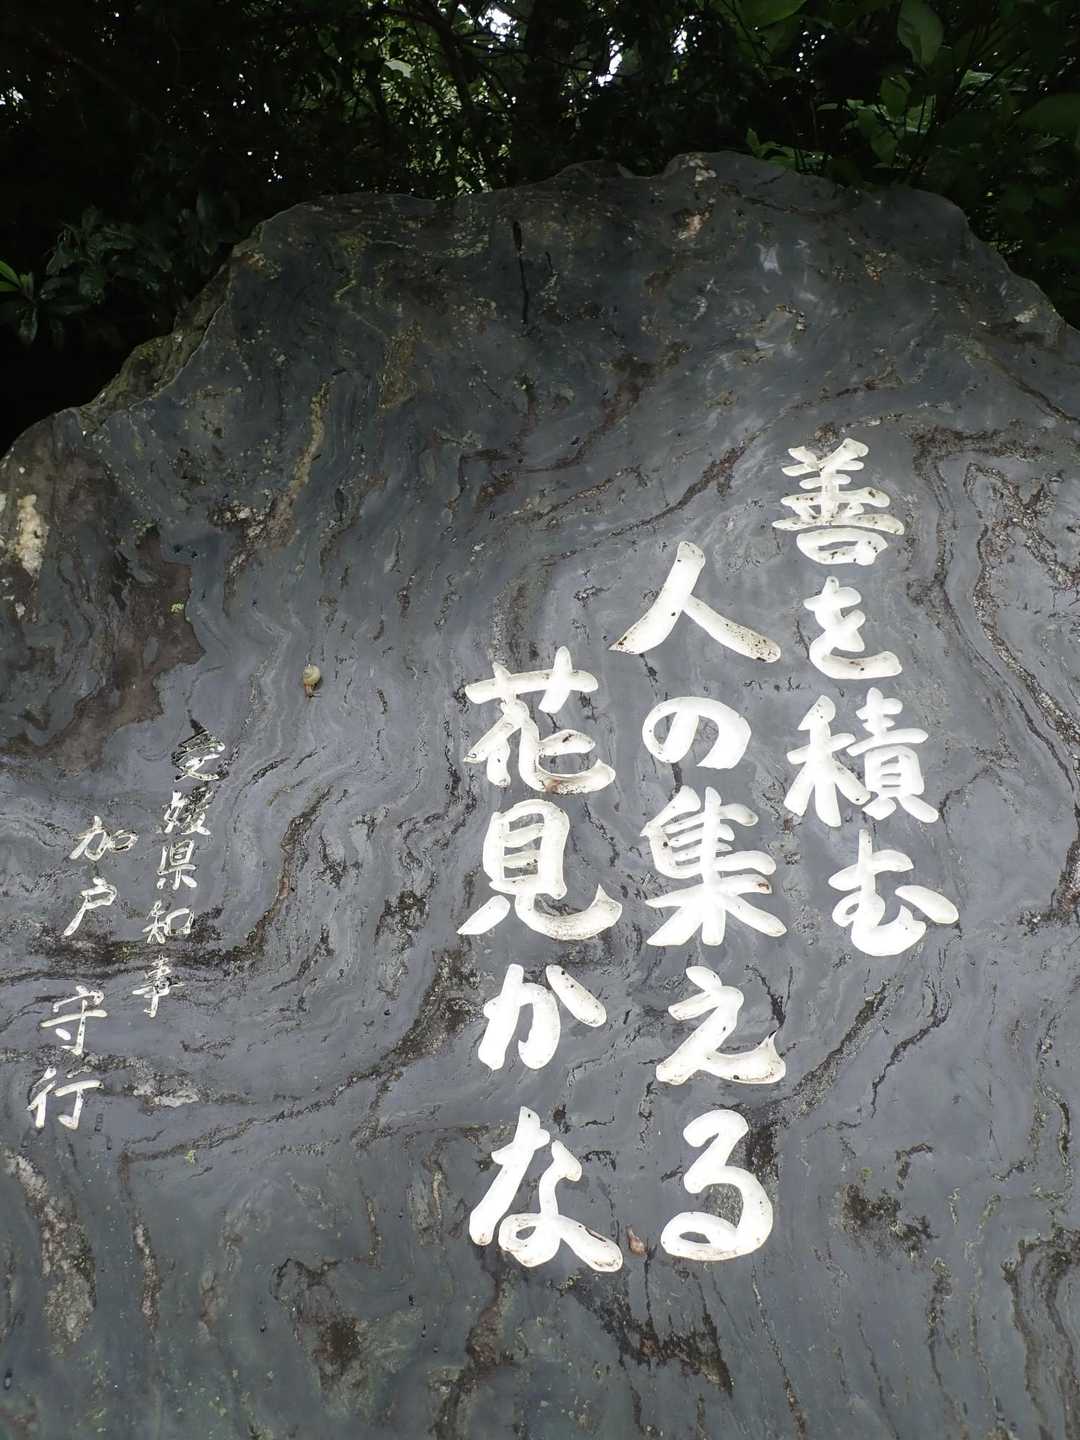 善を積む
人の集える
花見かな
愛媛県知事
加戸守行